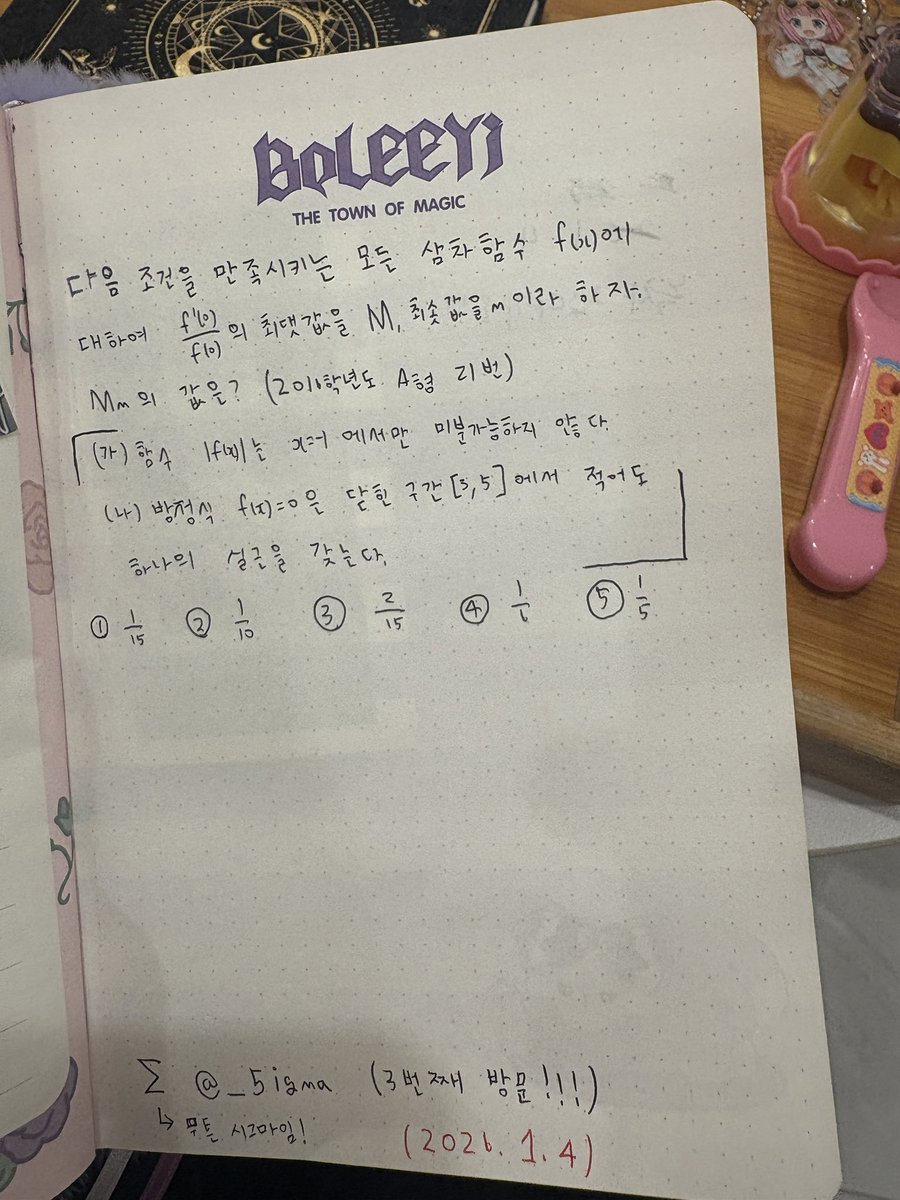 BOLEEYI
THE TOWN OF MAGIC
다음 조건을 만족시키는 모든 삼차함수 f(x)에
대하여 f'(0)/f(0)의 최댓값을 M, 최솟값을 m이라 하자.
Mm의 값은? (2016학년도 A형 21번)
(가) 함수 |f(x)|는 x=-1 에서만 미분가능하지 않다.
(나) 방정식 f(x)=0은 닫힌 구간 [3,5]에서 적어도
하나의 실근을 갖는다.
① 1/15 ② 1/10 ③ 2/15 ④ 1/6 ⑤ 1/5
Σ @_5igma (3번째 방문!!!)
↳ 무튼 시그마임!
(2026.1.4)